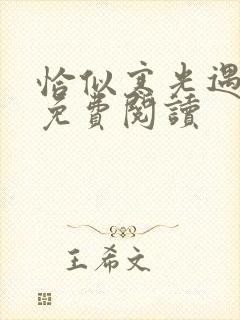 恰似寒光遇
免費閱讀
王希文